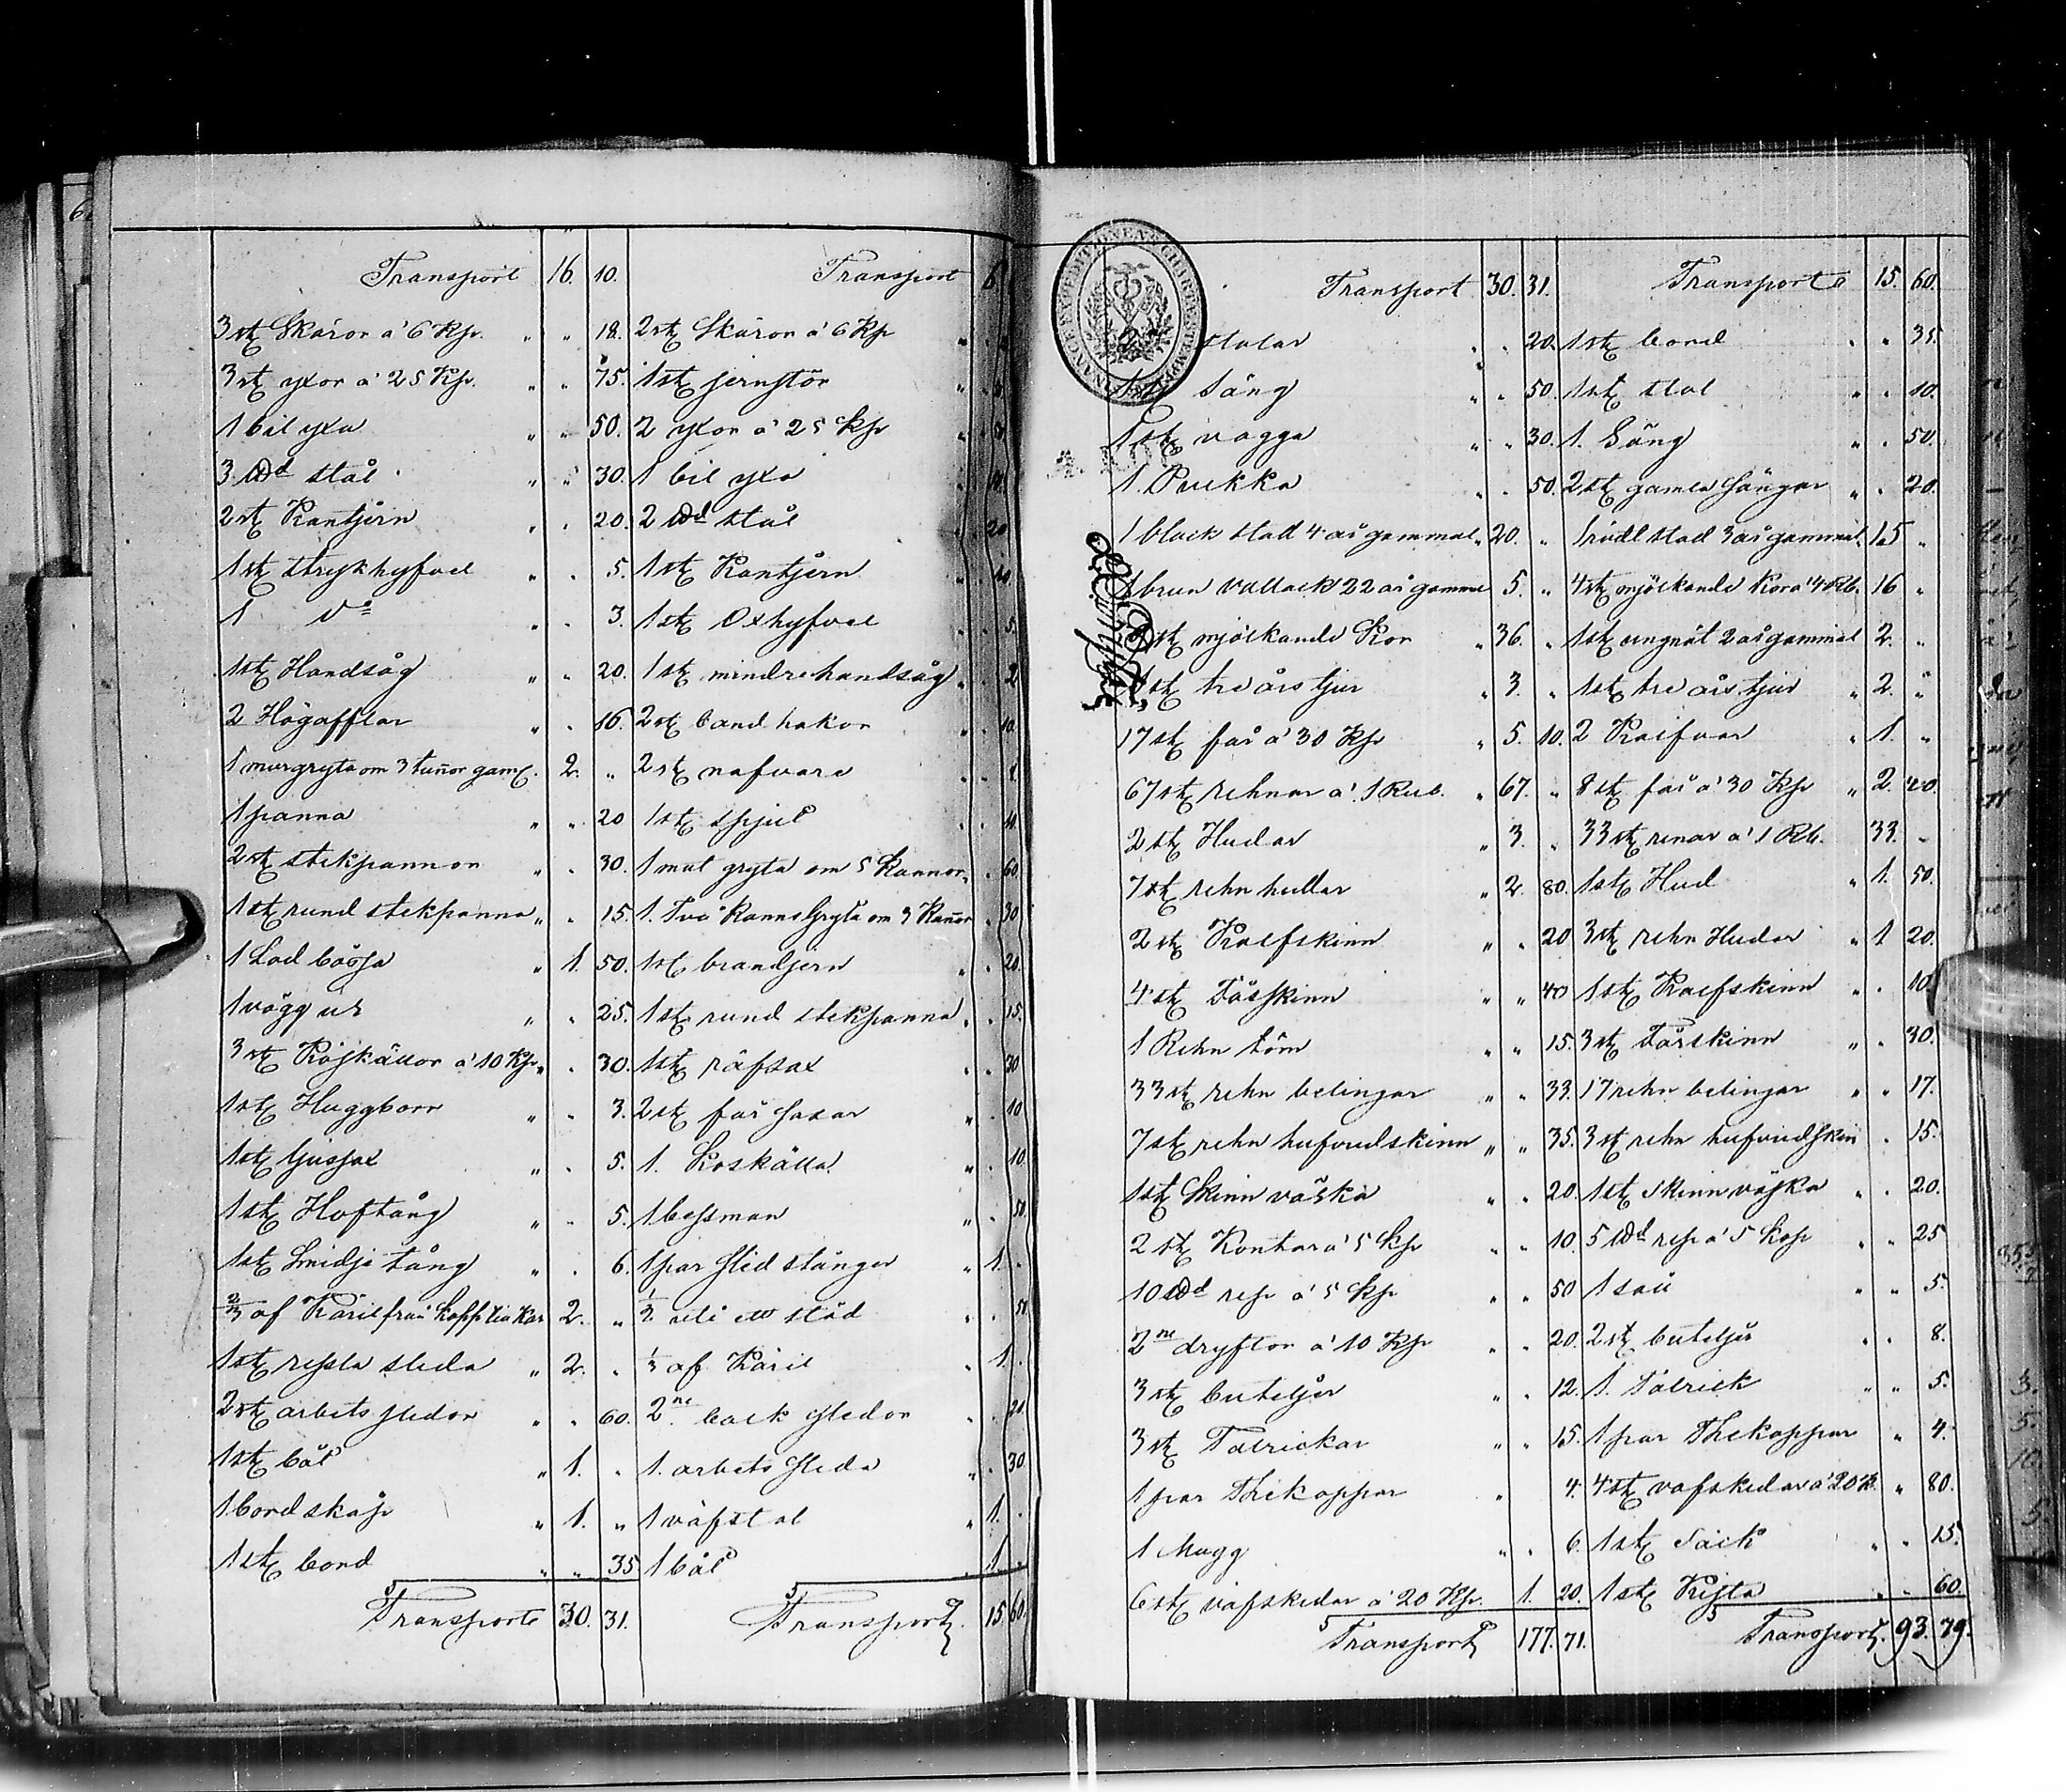 Transport 16. 10.
3 st Skäror a' 6 Kp. " " 18.
3 st yxor a' 25 Kp. " " 75.
1 bil yxa " " 50.
3 ℔d stål " " 30.
2 st Kantjern " " 20.
1 st strykhyfvel " " 5.
1 Do " " 3.
1 st Handsåg " " 20.
2 Högafflar " " 16.
1 murgryta om 3 tunnor gaml. 2. "
1 panna " " 20
2 st stekpannor " " 30.
1 st rund stekpanna " " 15.
1 Lod bössa " 1. 50.
1 vägg ur " " 25.
3 st Köskällor a' 10 Kp. " " 30.
1 st Huggborr " " 3.
1 st ljussax " " 5.
1 st Hoftång " " 5.
1 st Smidje tång " " 6.
2/3 af Käril från 2. "
1 st ressla släda " 2. "
2 st arbets slädor " " 60.
1 st båt " 1. "
1 bord skåp " 1. "
1 st bord " " 35
Transport 30. 31.
Transport 6
2 st Skäror a' 6 Kp
1 st jernstör
2 yxor a' 25 Kp
1 bil yxa
2 ℔d stål 20
1 st Kantjern
1 st Oxhyfvel " " 5.
1 st mindre handsåg " " 2
2 st band hakor " " 10.
2 st nafvare
1 st spjut
1 mat gryta om 5 Kannor " " 60
1. Två Kanns Gryta om 3 Kannor " 30
1 st brandjern " " 20.
1 st rund stekpanna " " 15.
1 st räfsax " " 30
2 st får saxar " " 10
1. Koskälla " " 10.
1 bessman " " 50.
1 par slädstänger " 1. "
1/2 uti ett städ " " 50.
1/3 af Käril " 1.
2ne back slädor " " 20.
1. arbets släda " " 30
1 väfstol " 1. "
1 båt 1 "
Transport 15 60.
Transport 30. 31.
stolar " " 20.
säng " " 50.
1 st vagga " " 30.
1. Pulkka " " 50.
1 black stod 4 år gammal " 20. "
1 brun vallack 22 år gammal 5. "
st mjölkande Kor " 36. "
1 st tre års tjur " 3. "
17 st får a' 30 Kp " 5. 10.
67 st rehnar a' 1 Rub. " 67. "
2 st Hudar " 3. "
7 st rehn hudar " 2 80.
2 st Kalfskinn " " 20
4 st Fårskinn " " 40
1 Rehn töm " " 15.
33 st rehn belingar " " 33.
7 st rehn hufvudskinn " " 35.
1 st Skinn väska " " 20.
2 st Kontar a' 5 Kp " " 10.
10 ℔d rep a' 5 Kp " " 50
2ne dryftor a' 10 Kp " " 20.
3 st buteljer " " 12.
3 st Talrickar " " 15.
1 par Thekoppar " 4.
1 Mugg " " 6.
6 st väfskedar a' 20 Kp. 1. 20.
Transport 177. 71.
Transport 15. 60.
1 st bord " " 35.
1 st stol " " 10.
1. Säng " " 50.
2 st gamla sängar " " 20.
1 röd stod 3 år gammal. 15 "
4 st mjölkande Kor a' 4 Rb. 16 "
1 st ungnöt 2 år gammal 2. "
1 st tre års tjur " 2. "
2 Kalfvar " 1. "
8 st får a' 30 Kp " 2. 40.
33 st renar a' 1 Rb. 33. "
1 st Hud " 1. 50.
3 st rehn Hudar " 1 20.
1 st Kalfskinn " " 10.
3 st Fårskinn " " 30.
17 rehn belingar " " 17.
3 st rehn hufvudskin " 15.
1 st skinn väska " " 20.
5 ℔d rep a' 5 Kop " " 25
1 såll " " 5.
2 st buteljer " " 8.
1. Talrick " " 5.
1 par Thekoppar " 4.
4 st väfskedar a' 20 K. " 80.
1 st säck " " 15.
1 st Kista " " 60.
Transport. 93. 79.